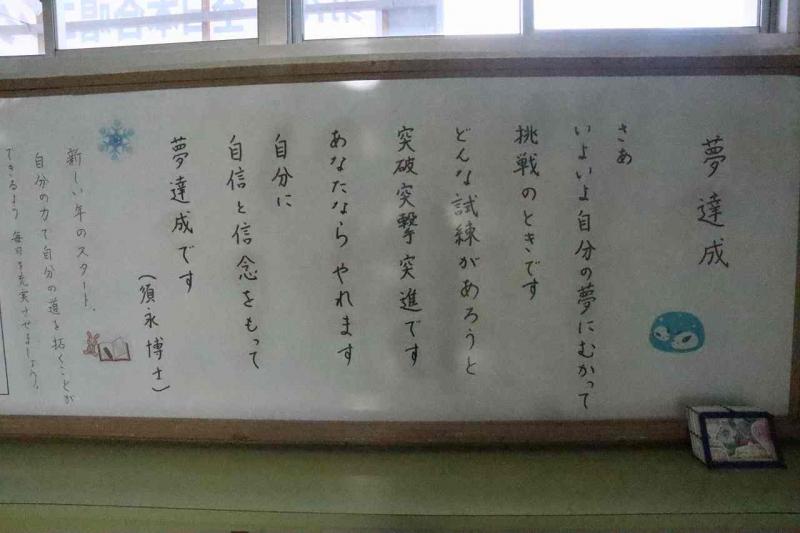 夢達成
さあ
いよいよ自分の夢にむかって
挑戦のときです
どんな試練があろうと
突破突撃突進です
あなたなら やれます
自分に
自信と信念をもって
夢達成です
（須永博士）
新しい年のスタート、
自分の力で自分の道を拓くことが
できるよう 毎日を充実させましょう。